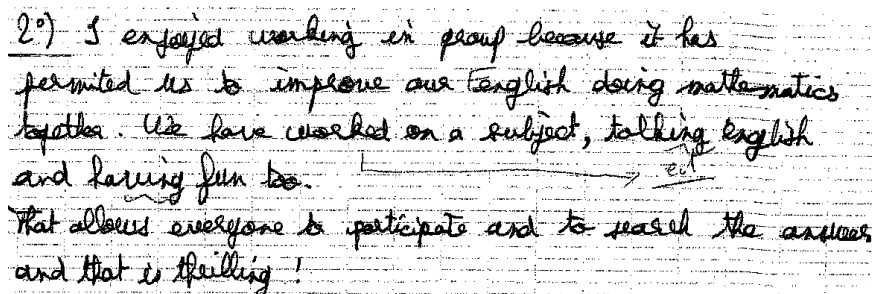 2°) I enjoyed working in group because it has
permited us to improve our English doing mathematics
together. We have worked on a subject, talking English
and having fun too. ed
That allows everyone to participate and to search the answer
and that is thrilling !